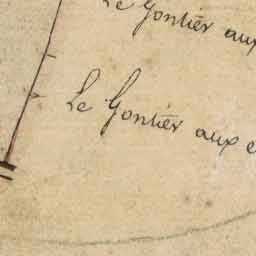 Le Gontier aux
Le Gontier aux e